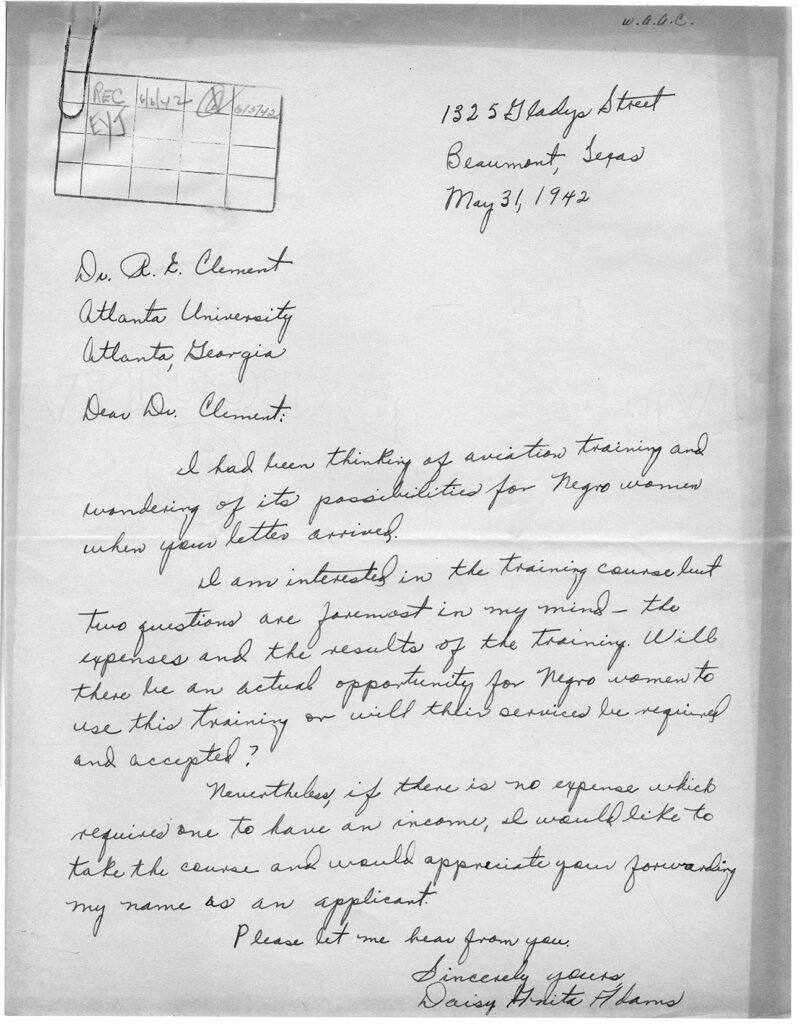 W.A.A.C.
REC 6/6/42 6/5/42
EYJ
1325 Gladys Street
Beaumont, Texas
May 31, 1942
Dr. R. E. Clement
Atlanta University
Atlanta, Georgia
Dear Dr. Clement:
I had been thinking of aviation training and
wondering of its possibilities for Negro women
when your letter arrived.
I am interested in the training course but
two questions are foremost in my mind — the
expenses and the results of the training. Will
there be an actual opportunity for Negro women to
use this training or will their services be required
and accepted?
Nevertheless, if there is no expense which
requires one to have an income, I would like to
take the course and would appreciate your forwarding
my name as an applicant.
Please let me hear from you.
Sincerely yours,
Daisy Anita Adams